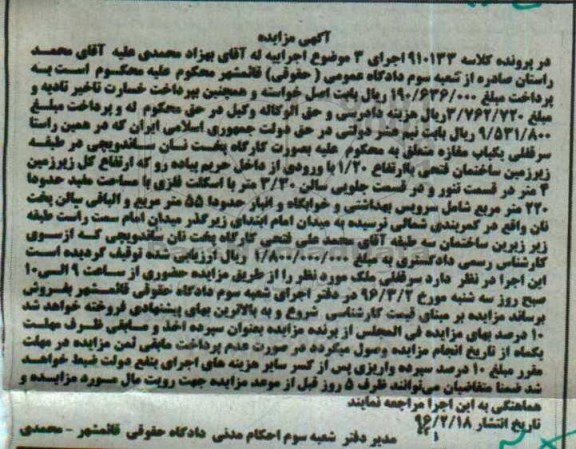 آگهی مزایده
در پرونده کلاسه ۹۱۰۱۳۳ اجرای ۳ موضوع اجراییه له آقای بهزاد محمدی علیه آقای محمد
راستان صادره از شعبه سوم دادگاه عمومی (حقوقی) قائمشهر محکوم علیه محکوم است به
پرداخت مبلغ ۱۹۰/۶۳۶/۰۰۰ ریال بابت اصل خواسته و همچنین بپرداخت خسارت تاخیر تادیه و
مبلغ ۳/۷۶۲/۷۲۰ ریال هزینه دادرسی و حق الوکاله وکیل در حق محکوم له و پرداخت مبلغ
۹/۵۳۱/۸۰۰ ریال بابت نیم عشر دولتی در حق دولت جمهوری اسلامی ایران که در همین راستا
سرقفلی یکباب مغازه متعلق به محکوم علیه بصورت کارگاه پخت نان ساندویچی در طبقه
زیرزمین ساختمان فتحی باارتفاع ۱/۲۰ با ورودی از داخل حریم پیاده رو که ارتفاع کل زیرزمین
۴ متر در قسمت تنور و در قسمت جلویی سالن ۳/۳۰ متر با اسکلت فلزی با مساحت مفید حدودا
۲۲۰ متر مربع شامل سرویس بهداشتی و خوابگاه و انبار حدودا ۵۵ متر مربع و الباقی سالن پخت
نان واقع در کمربندی شمالی نرسیده به میدان امام ابتدای زیرگذر میدان امام سمت راست طبقه
زیر زیرین ساختمان سه طبقه آقای محمد علی فتحی کارگاه پخت نان ساندویچی که ازسوی
کارشناس رسمی دادگستری به مبلغ ۱/۸۰۰/۰۰۰/۰۰۰ ریال ارزیابی شده توقیف گردیده است
این اجرا در نظر دارد سرقفلی ملک مورد نظر را از طریق مزایده حضوری از ساعت ۹ الی ۱۰
صبح روز سه شنبه مورخ ۹۶/۳/۲ در دفتر اجرای شعبه سوم دادگاه حقوقی قائمشهر بفروش
برساند مزایده بر مبنای قیمت کارشناسی شروع و به بالاترین بهای پیشنهادی فروخته خواهد شد
۱۰ درصد بهای مزایده فی المجلس از برنده مزایده بعنوان سپرده اخذ و مابقی ظرف مهلت
یکماه از تاریخ انجام مزایده وصول میگردد در صورت عدم پرداخت مابقی ثمن مزایده در مهلت
مقرر مبلغ ۱۰ درصد سپرده واریزی پس از کسر سایر هزینه های اجرای بنفع دولت ضبط خواهد
شد ضمنا متقاضیان می‌توانند ظرف ۵ روز قبل از موعد مزایده جهت رویت مال مورد مزایده و
هماهنگی به این اجرا مراجعه نمایند
تاریخ انتشار ۹۶/۲/۱۸
مدیر دفتر شعبه سوم احکام مدنی دادگاه حقوقی قائمشهر - محمدی